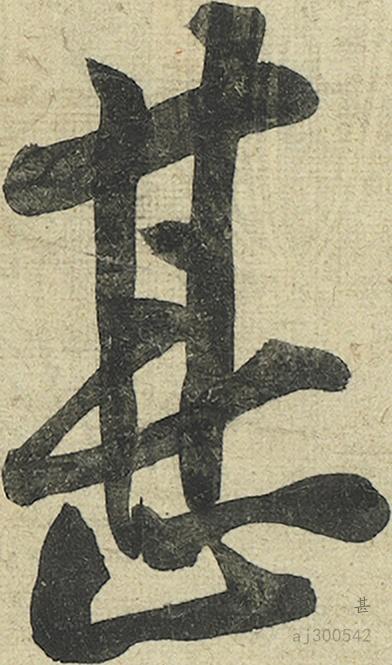 甚
甚
aj300542